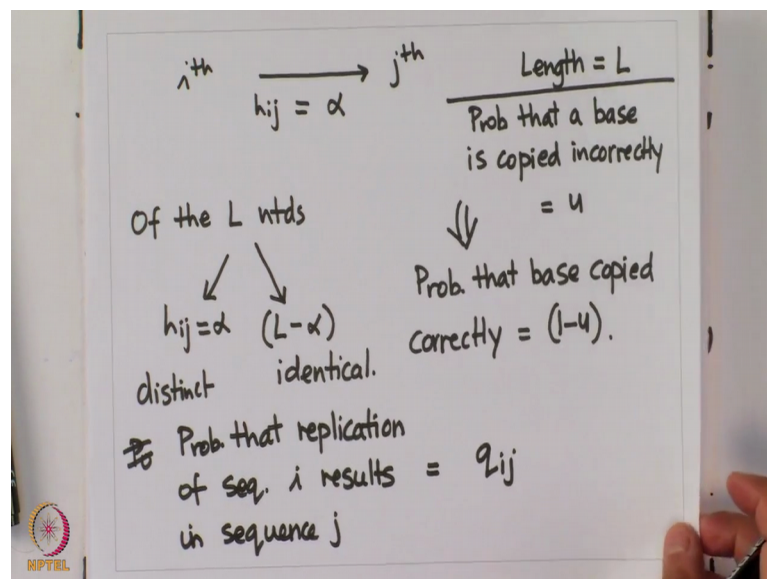 ith → jth
hij = α
Length = L
Prob that a base
is copied incorrectly
= u
⇓
Prob. that base copied
correctly = (1-u).
Of the L ntds
hij=α (L-α)
distinct identical.
Prob. that replication
of seq. i results = qij
in sequence j
NPTEL